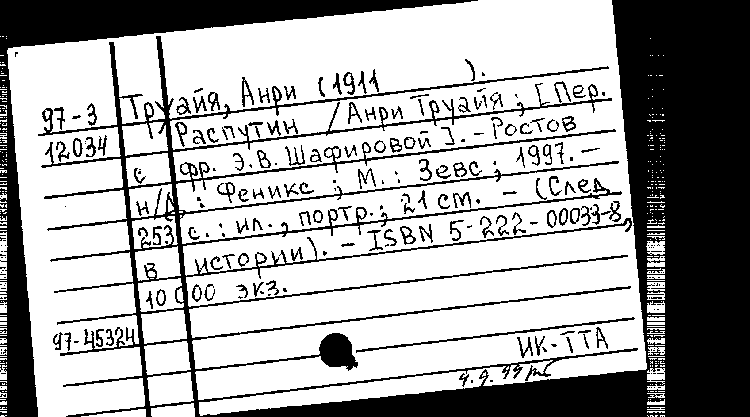 Труайя, Анри (1911 ).
97-3 Распутин / Анри Труайя ; [Пер.
12034 с фр. Э.В. Шафировой]. - Ростов
н/Д. : Феникс ; М. : Зевс ; 1997. -
253 с. : ил., портр. ; 21 см. - (След
в истории). - ISBN 5-222-00033-8,
10 000 экз.
97-45324
ИК-ТТА